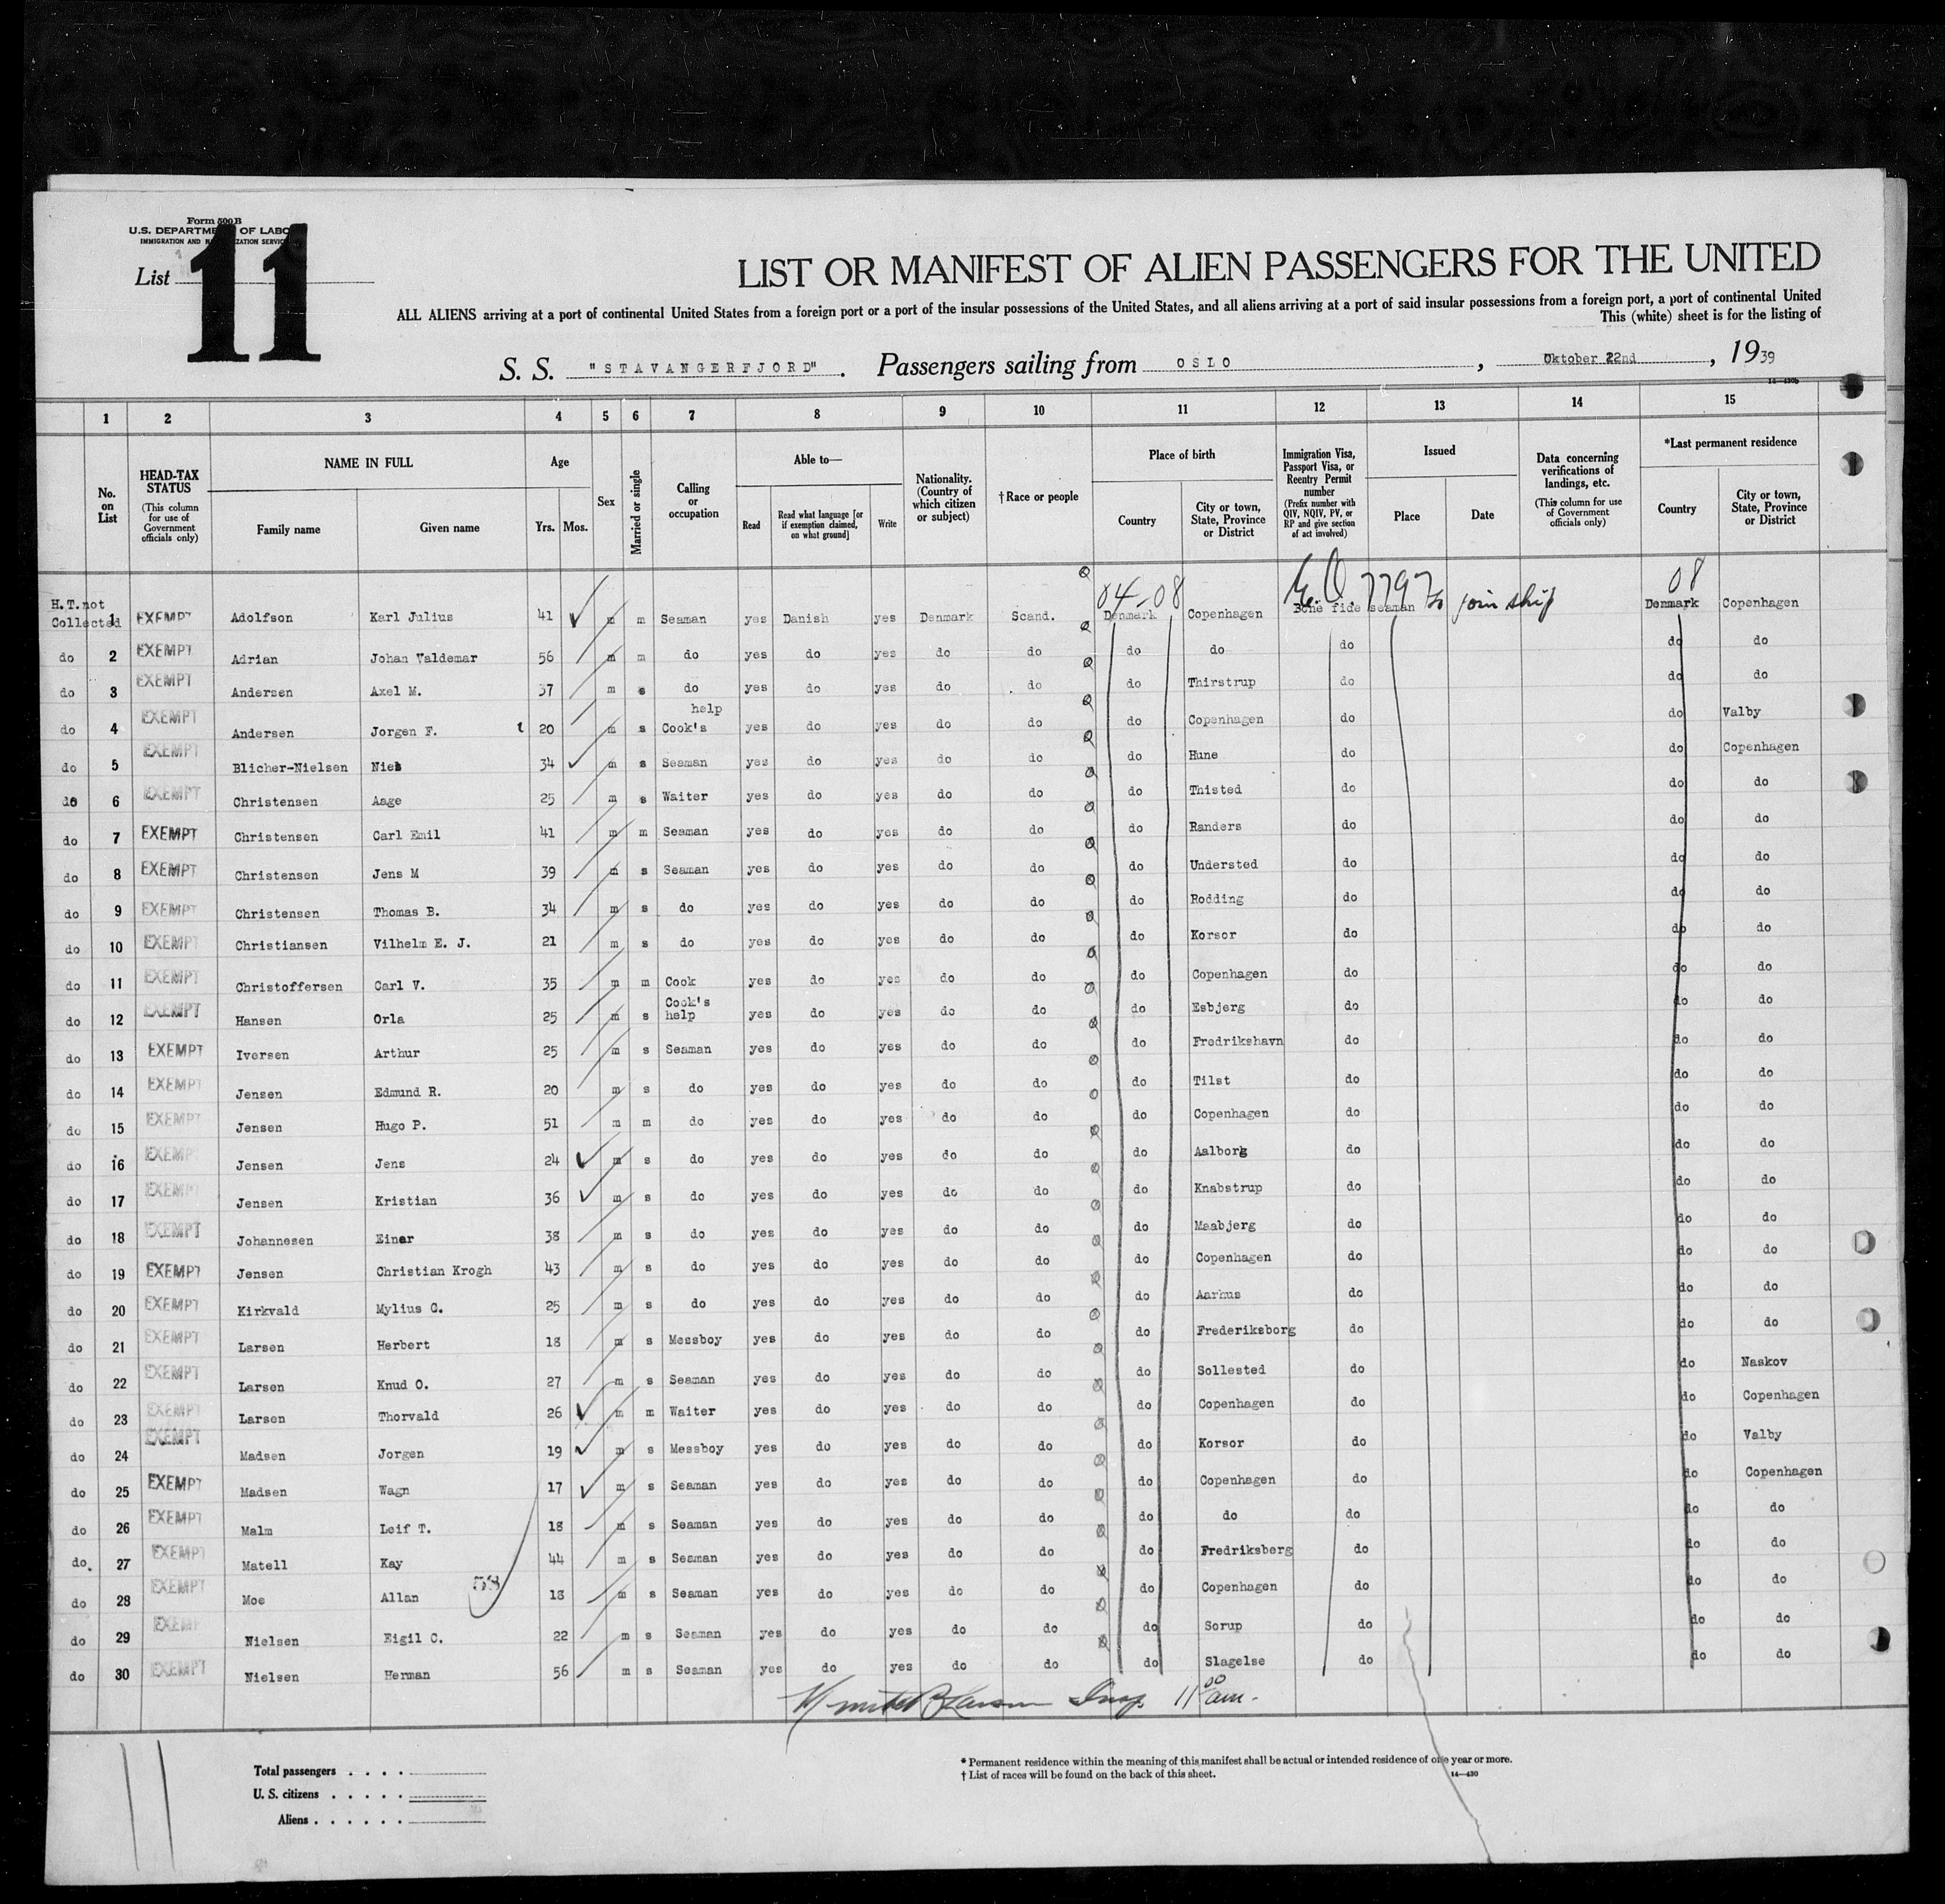 Form 500 B
U.S. DEPARTMENT OF LABOR
IMMIGRATION AND NATURALIZATION SERVICE
List 11
LIST OR MANIFEST OF ALIEN PASSENGERS FOR THE UNITED
ALL ALIENS arriving at a port of continental United States from a foreign port or a port of the insular possessions of the United States, and all aliens arriving at a port of said insular possessions from a foreign port, a port of continental United
This (white) sheet is for the listing of
S. S. "STAVANGERFJORD". Passengers sailing from OSLO, Oktober 22nd, 1939
14—430b
1 2 3 4 5 6 7 8 9 10 11 12 13 14 15
No. on List
HEAD-TAX STATUS (This column for use of Government officials only)
NAME IN FULL
Family name Given name
Age
Yrs. Mos.
Sex
Married or single
Calling or occupation
Able to—
Read
Read what language [or if exemption claimed, on what ground]
Write
Nationality. (Country of which citizen or subject)
†Race or people
Place of birth
Country
City or town, State, Province or District
Immigration Visa, Passport Visa, or Reentry Permit number (Prefix number with QIV, NQIV, PV, or RP and give section of act involved)
Issued
Place Date
Data concerning verifications of landings, etc. (This column for use of Government officials only)
*Last permanent residence
Country
City or town, State, Province or District
04-08 E.O. 7797 to join ship 08
H.T.not Collected 1 EXEMPT Adolfson Karl Julius 41 m m Seaman yes Danish yes Denmark Scand. Denmark Copenhagen Bone fide seaman Denmark Copenhagen
do 2 EXEMPT Adrian Johan Valdemar 56 m m do yes do yes do do do do do do do
do 3 EXEMPT Andersen Axel M. 37 m s do yes do yes do do do Thirstrup do do do
do 4 EXEMPT Andersen Jorgen F. 20 m s Cook's help yes do yes do do do Copenhagen do do Valby
do 5 EXEMPT Blicher-Nielsen Niels 34 m s Seaman yes do yes do do do Hune do do Copenhagen
do 6 EXEMPT Christensen Aage 25 m s Waiter yes do yes do do do Thisted do do do
do 7 EXEMPT Christensen Carl Emil 41 m m Seaman yes do yes do do do Randers do do do
do 8 EXEMPT Christensen Jens M 39 m s Seaman yes do yes do do do Understed do do do
do 9 EXEMPT Christensen Thomas B. 34 m s do yes do yes do do do Rodding do do do
do 10 EXEMPT Christiansen Vilhelm E. J. 21 m s do yes do yes do do do Korsor do do do
do 11 EXEMPT Christoffersen Carl V. 35 m m Cook yes do yes do do do Copenhagen do do do
do 12 EXEMPT Hansen Orla 25 m s Cook's help yes do yes do do do Esbjerg do do do
do 13 EXEMPT Iversen Arthur 25 m s Seaman yes do yes do do do Fredrikshavn do do do
do 14 EXEMPT Jensen Edmund R. 20 m s do yes do yes do do do Tilst do do do
do 15 EXEMPT Jensen Hugo P. 51 m m do yes do yes do do do Copenhagen do do do
do 16 EXEMPT Jensen Jens 24 m s do yes do yes do do do Aalborg do do do
do 17 EXEMPT Jensen Kristian 36 m s do yes do yes do do do Knabstrup do do do
do 18 EXEMPT Johannesen Einar 38 m s do yes do yes do do do Maabjerg do do do
do 19 EXEMPT Jensen Christian Krogh 43 m s do yes do yes do do do Copenhagen do do do
do 20 EXEMPT Kirkvald Mylius C. 25 m s do yes do yes do do do Aarhus do do do
do 21 EXEMPT Larsen Herbert 18 m s Messboy yes do yes do do do Frederiksborg do do do
do 22 EXEMPT Larsen Knud O. 27 m s Seaman yes do yes do do do Sollested do do Naskov
do 23 EXEMPT Larsen Thorvald 26 m m Waiter yes do yes do do do Copenhagen do do Copenhagen
do 24 EXEMPT Madsen Jorgen 19 m s Messboy yes do yes do do do Korsor do do Valby
do 25 EXEMPT Madsen Wagn 17 m s Seaman yes do yes do do do Copenhagen do do Copenhagen
do 26 EXEMPT Malm Leif T. 18 m s Seaman yes do yes do do do do do do do
do. 27 EXEMPT Matell Kay 44 m s Seaman yes do yes do do do Fredriksberg do do do
do 28 EXEMPT Moe Allan 58 18 m s Seaman yes do yes do do do Copenhagen do do do
do 29 EXEMPT Nielsen Eigil C. 22 m s Seaman yes do yes do do do Sorup do do do
do 30 EXEMPT Nielsen Herman 56 m s Seaman yes do yes do do do Slagelse do do do
Insp. 11 00 am.
Total passengers . . . .
U. S. citizens . . . . .
Aliens . . . . . .
* Permanent residence within the meaning of this manifest shall be actual or intended residence of one year or more.
† List of races will be found on the back of this sheet.
14—430
11